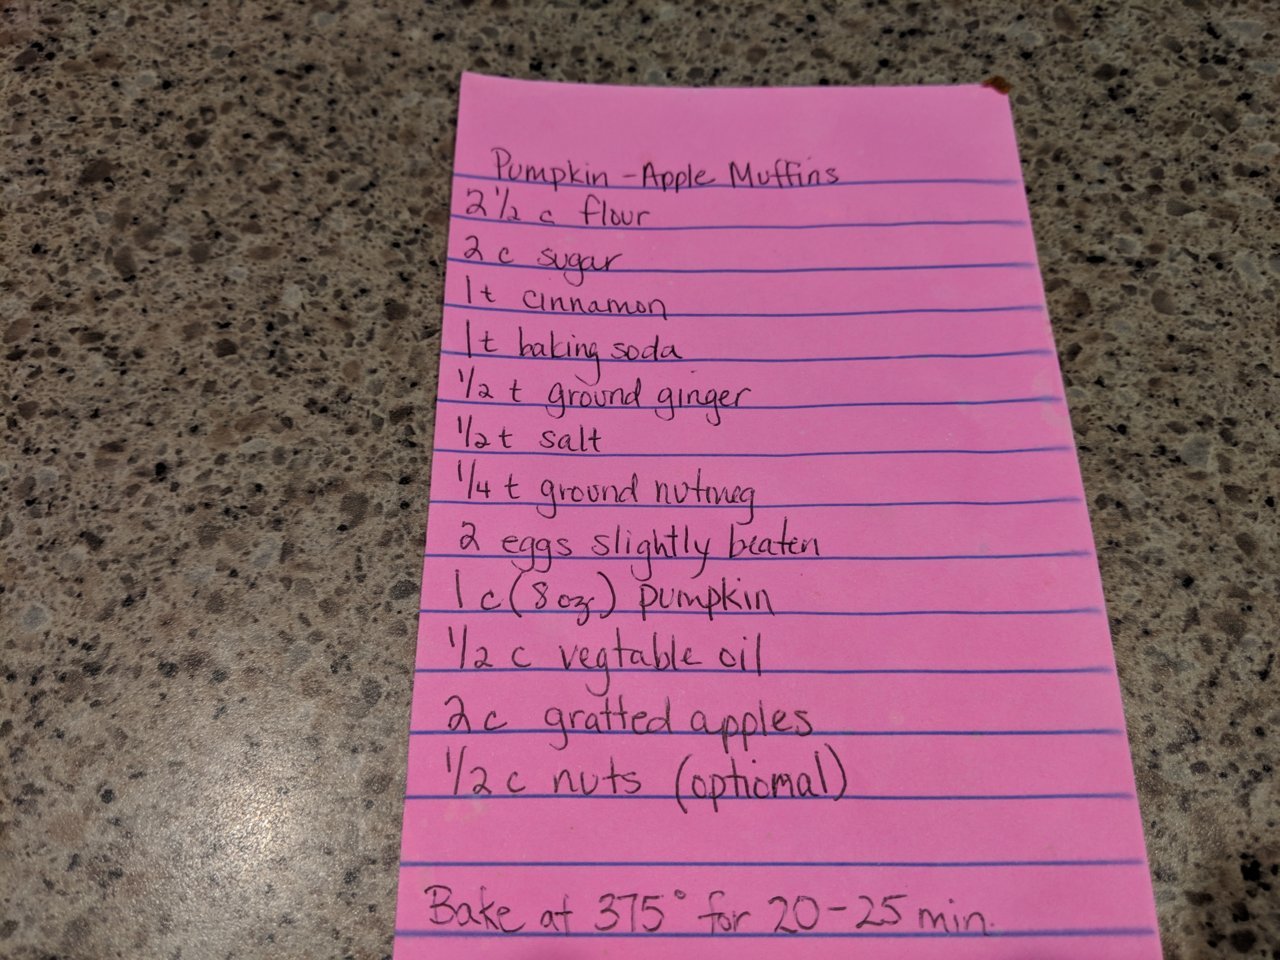 Pumpkin - Apple Muffins
2 1/2 c flour
2 c sugar
1 t cinnamon
1 t baking soda
1/2 t ground ginger
1/2 t salt
1/4 t ground nutmeg
2 eggs slightly beaten
1 c (8 oz) pumpkin
1/2 c vegtable oil
2 c gratted apples
1/2 c nuts (optional)
Bake at 375° for 20-25 min.